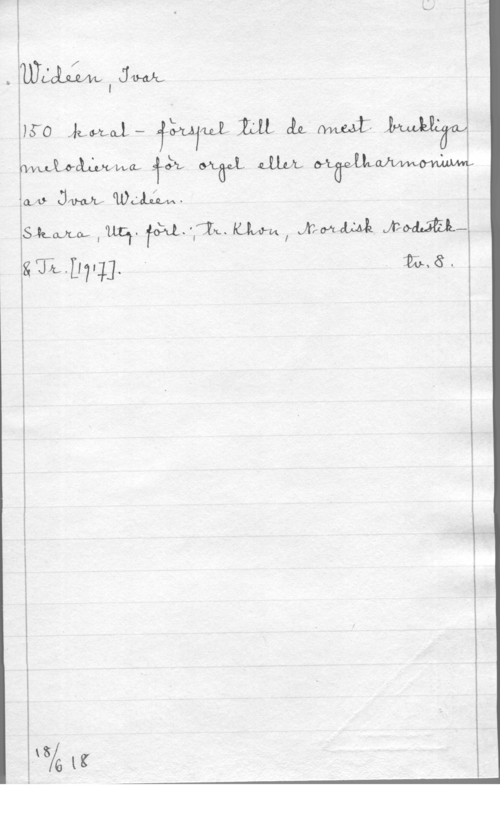 Widéen, Ivar
150 koral-förspel till de mest brukliga
melodierna för orgel eller orgelharmonium
av Ivar Widéen.
Skara, Utg. förl.; Tr. Khvn, Nordisk Nodestik-
& Tr. [1917]. tv. 8.
18/6 18